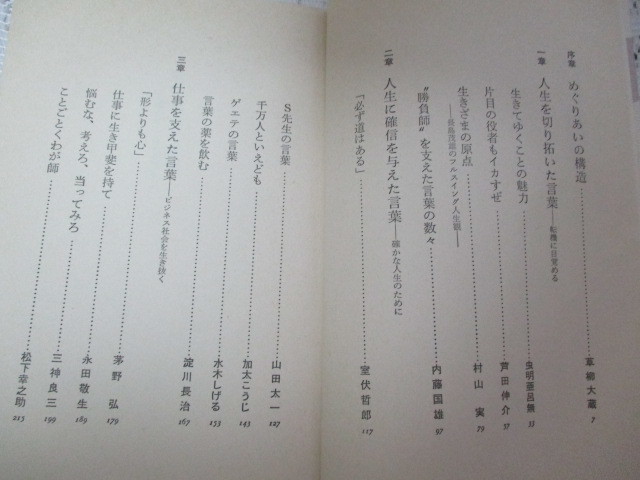 序章 めぐりあいの構造 草柳大蔵 7
一章 人生を切り拓いた言葉――転機に目覚める
生きてゆくことの魅力 虫明亜呂無 33
片目の役者もイカすぜ 芦田伸介 57
生きざまの原点 村山実 79
――長島茂雄のフルスイング人生観――
“勝負師”を支えた言葉の数々 内藤国雄 97
二章 人生に確信を与えた言葉――確かな人生のために
「必ず道はある」 室伏哲郎 117
S先生の言葉 山田太一 127
千万人といえども 加太こうじ 143
ゲエテの言葉 水木しげる 153
言葉の薬を飲む 淀川長治 167
三章 仕事を支えた言葉――ビジネス社会を生き抜く
「形よりも心」 茅野弘 179
仕事に生き甲斐を持て 永田敬生 189
悩むな、考えろ、当ってみろ 三神良三 199
ことごとくわが師 松下幸之助 215